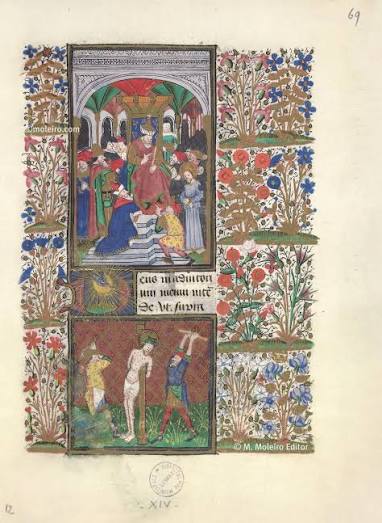 69
©moleiro.com
eus in adiutori
um meum inte
de. Vt. supra
© M. Moleiro Editor
- XIV -
12